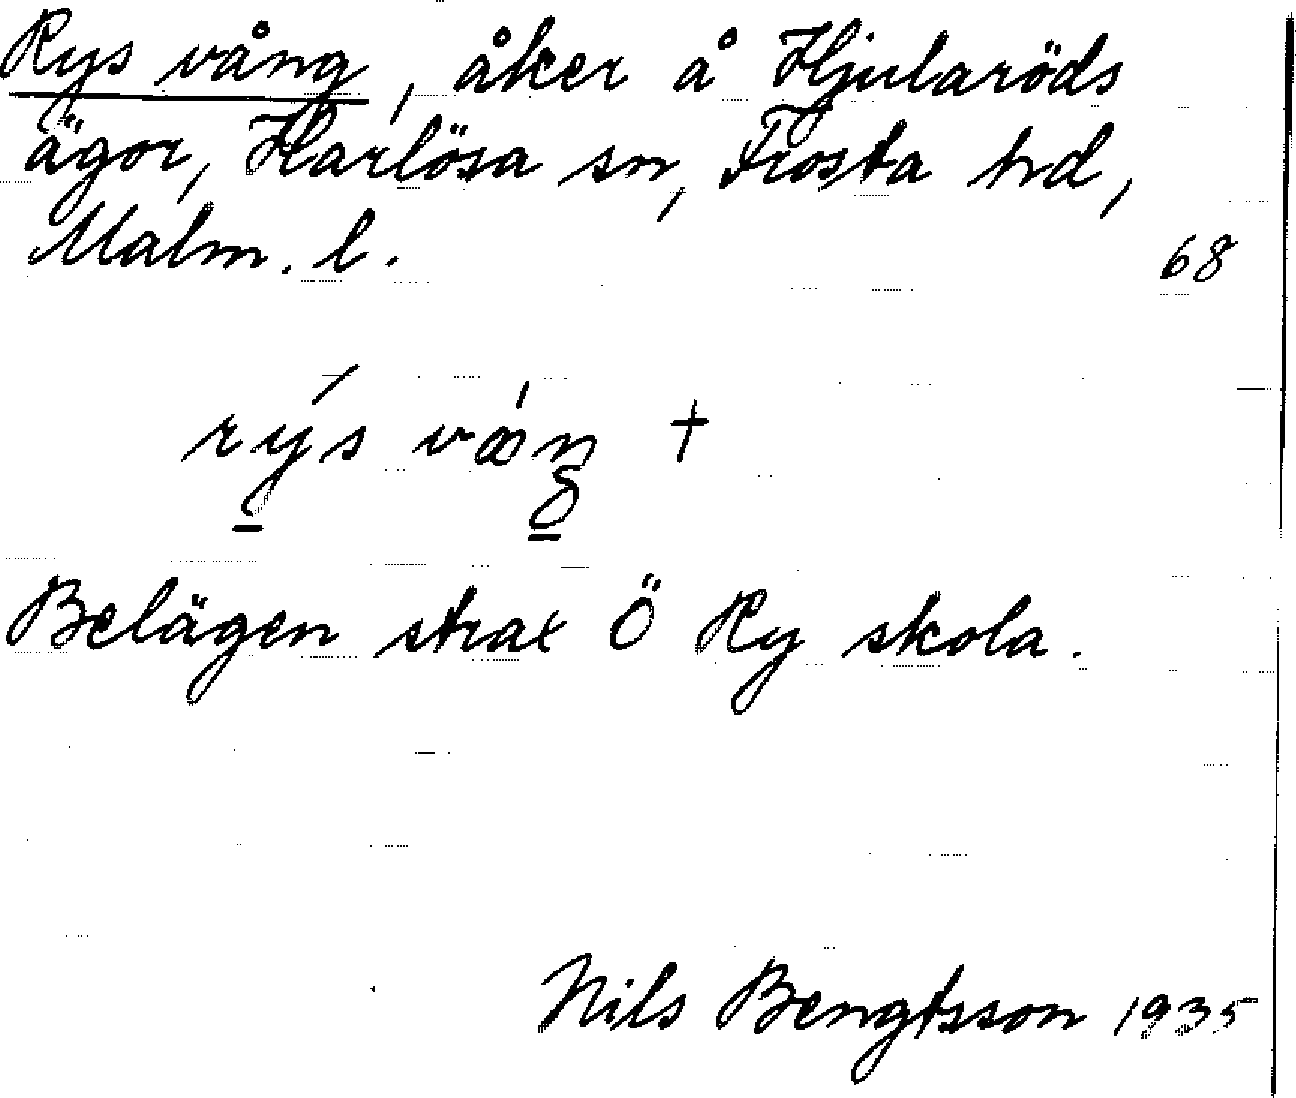 Rys vång, åker å Hjularöds
ägor, Harlösa sn, Frosta hd,
Malm. l.
68
Belägen strax Ö Ry skola.
Nils Bengtsson 1935